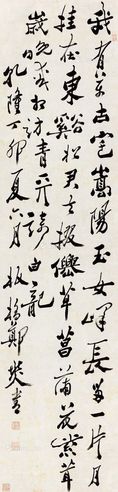 我有萬古宅嵩陽玉女峰長留一片月
挂在東谿松君去掇僊草菖蒲花紫茸
歲晚或相訪青天騎白龍
乾隆丁卯夏六月板橋鄭燮書